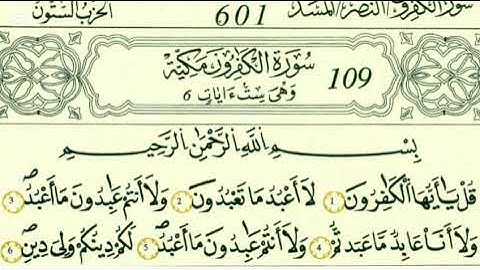 سورة الكفرون النصر المسد 601 الحزب الستون
سُورَةُ الْكَٰفِرُونَ مَكِّيَّة 109
وَهِيَ سِتُّ ءَايَاتٍ 6
بِسْمِ اِ۬للَّهِ اِ۬لرَّحْمَٰنِ اِ۬لرَّحِيمِ
قُلْ يَٰأَيُّهَا اَ۬لْكَٰفِرُونَ 1 لَا أَعْبُدُ مَا تَعْبُدُونَ 2 وَلَا أَنتُمْ عَٰبِدُونَ مَا أَعْبُدُ 3
وَلَا أَنَا عَابِدٌ مَّا عَبَدتُّمْ 4 وَلَا أَنتُمْ عَٰبِدُونَ مَا أَعْبُدُ 5 لَكُمْ دِينُكُمْ وَلِيَ دِينِ 6